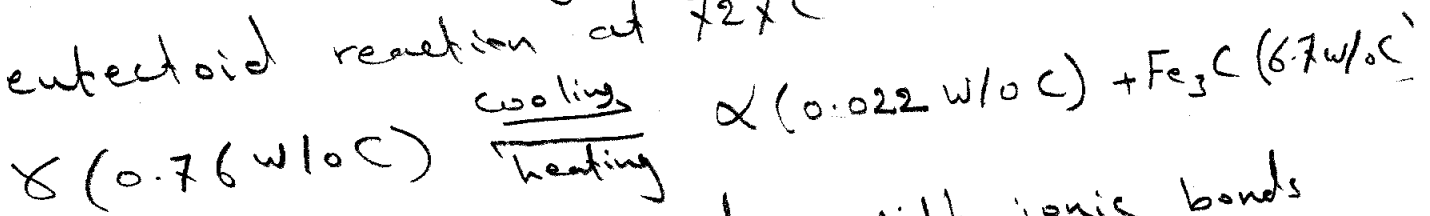 eutectoid reaction at 727°C
γ (0.76 w/o C) cooling ⇌ heating α (0.022 w/o C) + Fe₃C (6.7 w/o C)
ionic bonds